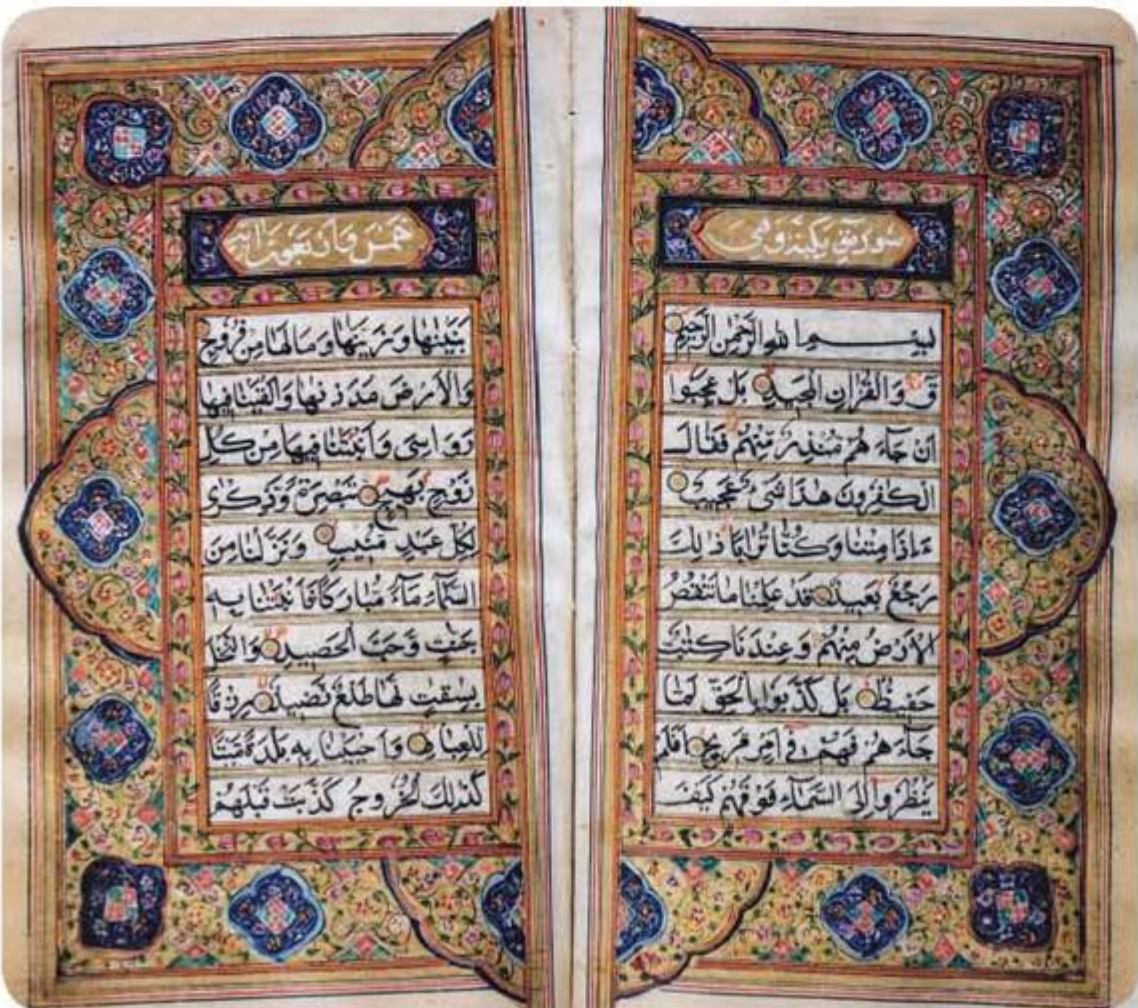 سورة ق مكية وهي
بِسْمِ اللهِ الرَّحْمٰنِ الرَّحِيْمِ
قٓ وَالْقُرْاٰنِ الْمَجِيْدِ بَلْ عَجِبُوا
اَنْ جَآءَ هُمْ مُنْذِرٌ مِنْهُمْ فَقَالَ
الْكٰفِرُونَ هٰذَا شَیْءٌ عَجِيبٌ
ءَاِذَا مِتْنَا وَكُنَّا تُرَابًا ذٰلِكَ
رَجْعٌ بَعِيدٌ قَدْ عَلِمْنَا مَا تَنْقُصُ
الْاَرْضُ مِنْهُمْ وَعِنْدَنَا كِتٰبٌ
حَفِيظٌ بَلْ كَذَّبُوا بِالْحَقِّ لَمَّا
جَآءَ هُمْ فَهُمْ فِى اَمْرٍ مَرِيجٍ اَفَلَمْ
يَنْظُرُوآ اِلَى السَّمَآءِ فَوْقَهُمْ كَيْفَ
خمس واربعون آية
بَنَيْنٰهَا وَزَيَّنّٰهَا وَمَا لَهَا مِنْ فُرُوجٍ
وَالْاَرْضَ مَدَدْنٰهَا وَاَلْقَيْنَا فِيهَا
رَوَاسِىَ وَاَنْبَتْنَا فِيهَا مِنْ كُلِّ
زَوْجٍ بَهِيجٍ تَبْصِرَةً وَّذِكْرٰى
لِكُلِّ عَبْدٍ مُنِيبٍ وَنَزَّلْنَا مِنَ
السَّمَآءِ مَآءً مُبَارَكًا فَاَنْبَتْنَا بِهٖ
جَنّٰتٍ وَّحَبَّ الْحَصِيدِ وَالنَّخْلَ
بٰسِقٰتٍ لَهَا طَلْعٌ نَضِيدٌ رِزْقًا
لِلْعِبَادِ وَاَحْيَيْنَا بِهٖ بَلْدَةً مَّيْتًا
كَذٰلِكَ الْخُرُوجُ كَذَّبَتْ قَبْلَهُمْ